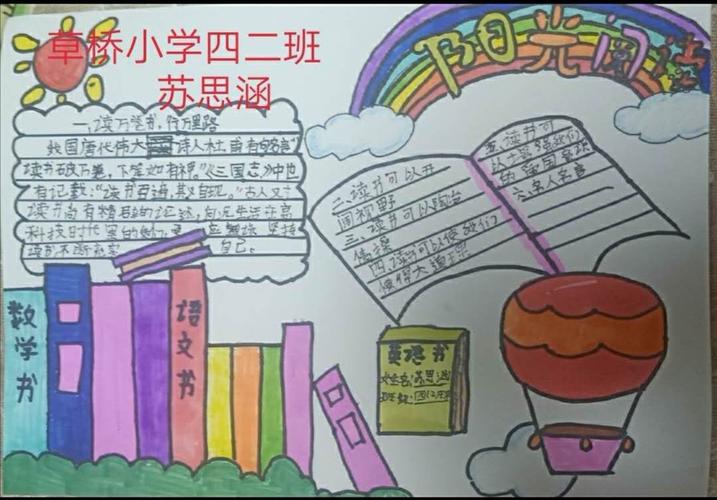 草桥小学四二班
苏思涵
阳光阅读
一、读万卷书,行万里路
我国唐代伟大诗人杜甫有名言"
读书破万卷,下笔如有神"《三国志》中也
有记载:"读书百遍,其义自现。"古人又寸
读书尚有精的论述,何况生活在高
科技时代里的我们,更应勤读坚持
读书不断充实自己。
二、读书可以开
阔视野
三、读书可以陶冶
情操
四、读书可以使我们
懂得大道理
五、读书可
以丰富我们
的
六、名人名言
数学书
语文书
英语书
姓名:苏思涵
班级:四(2)班